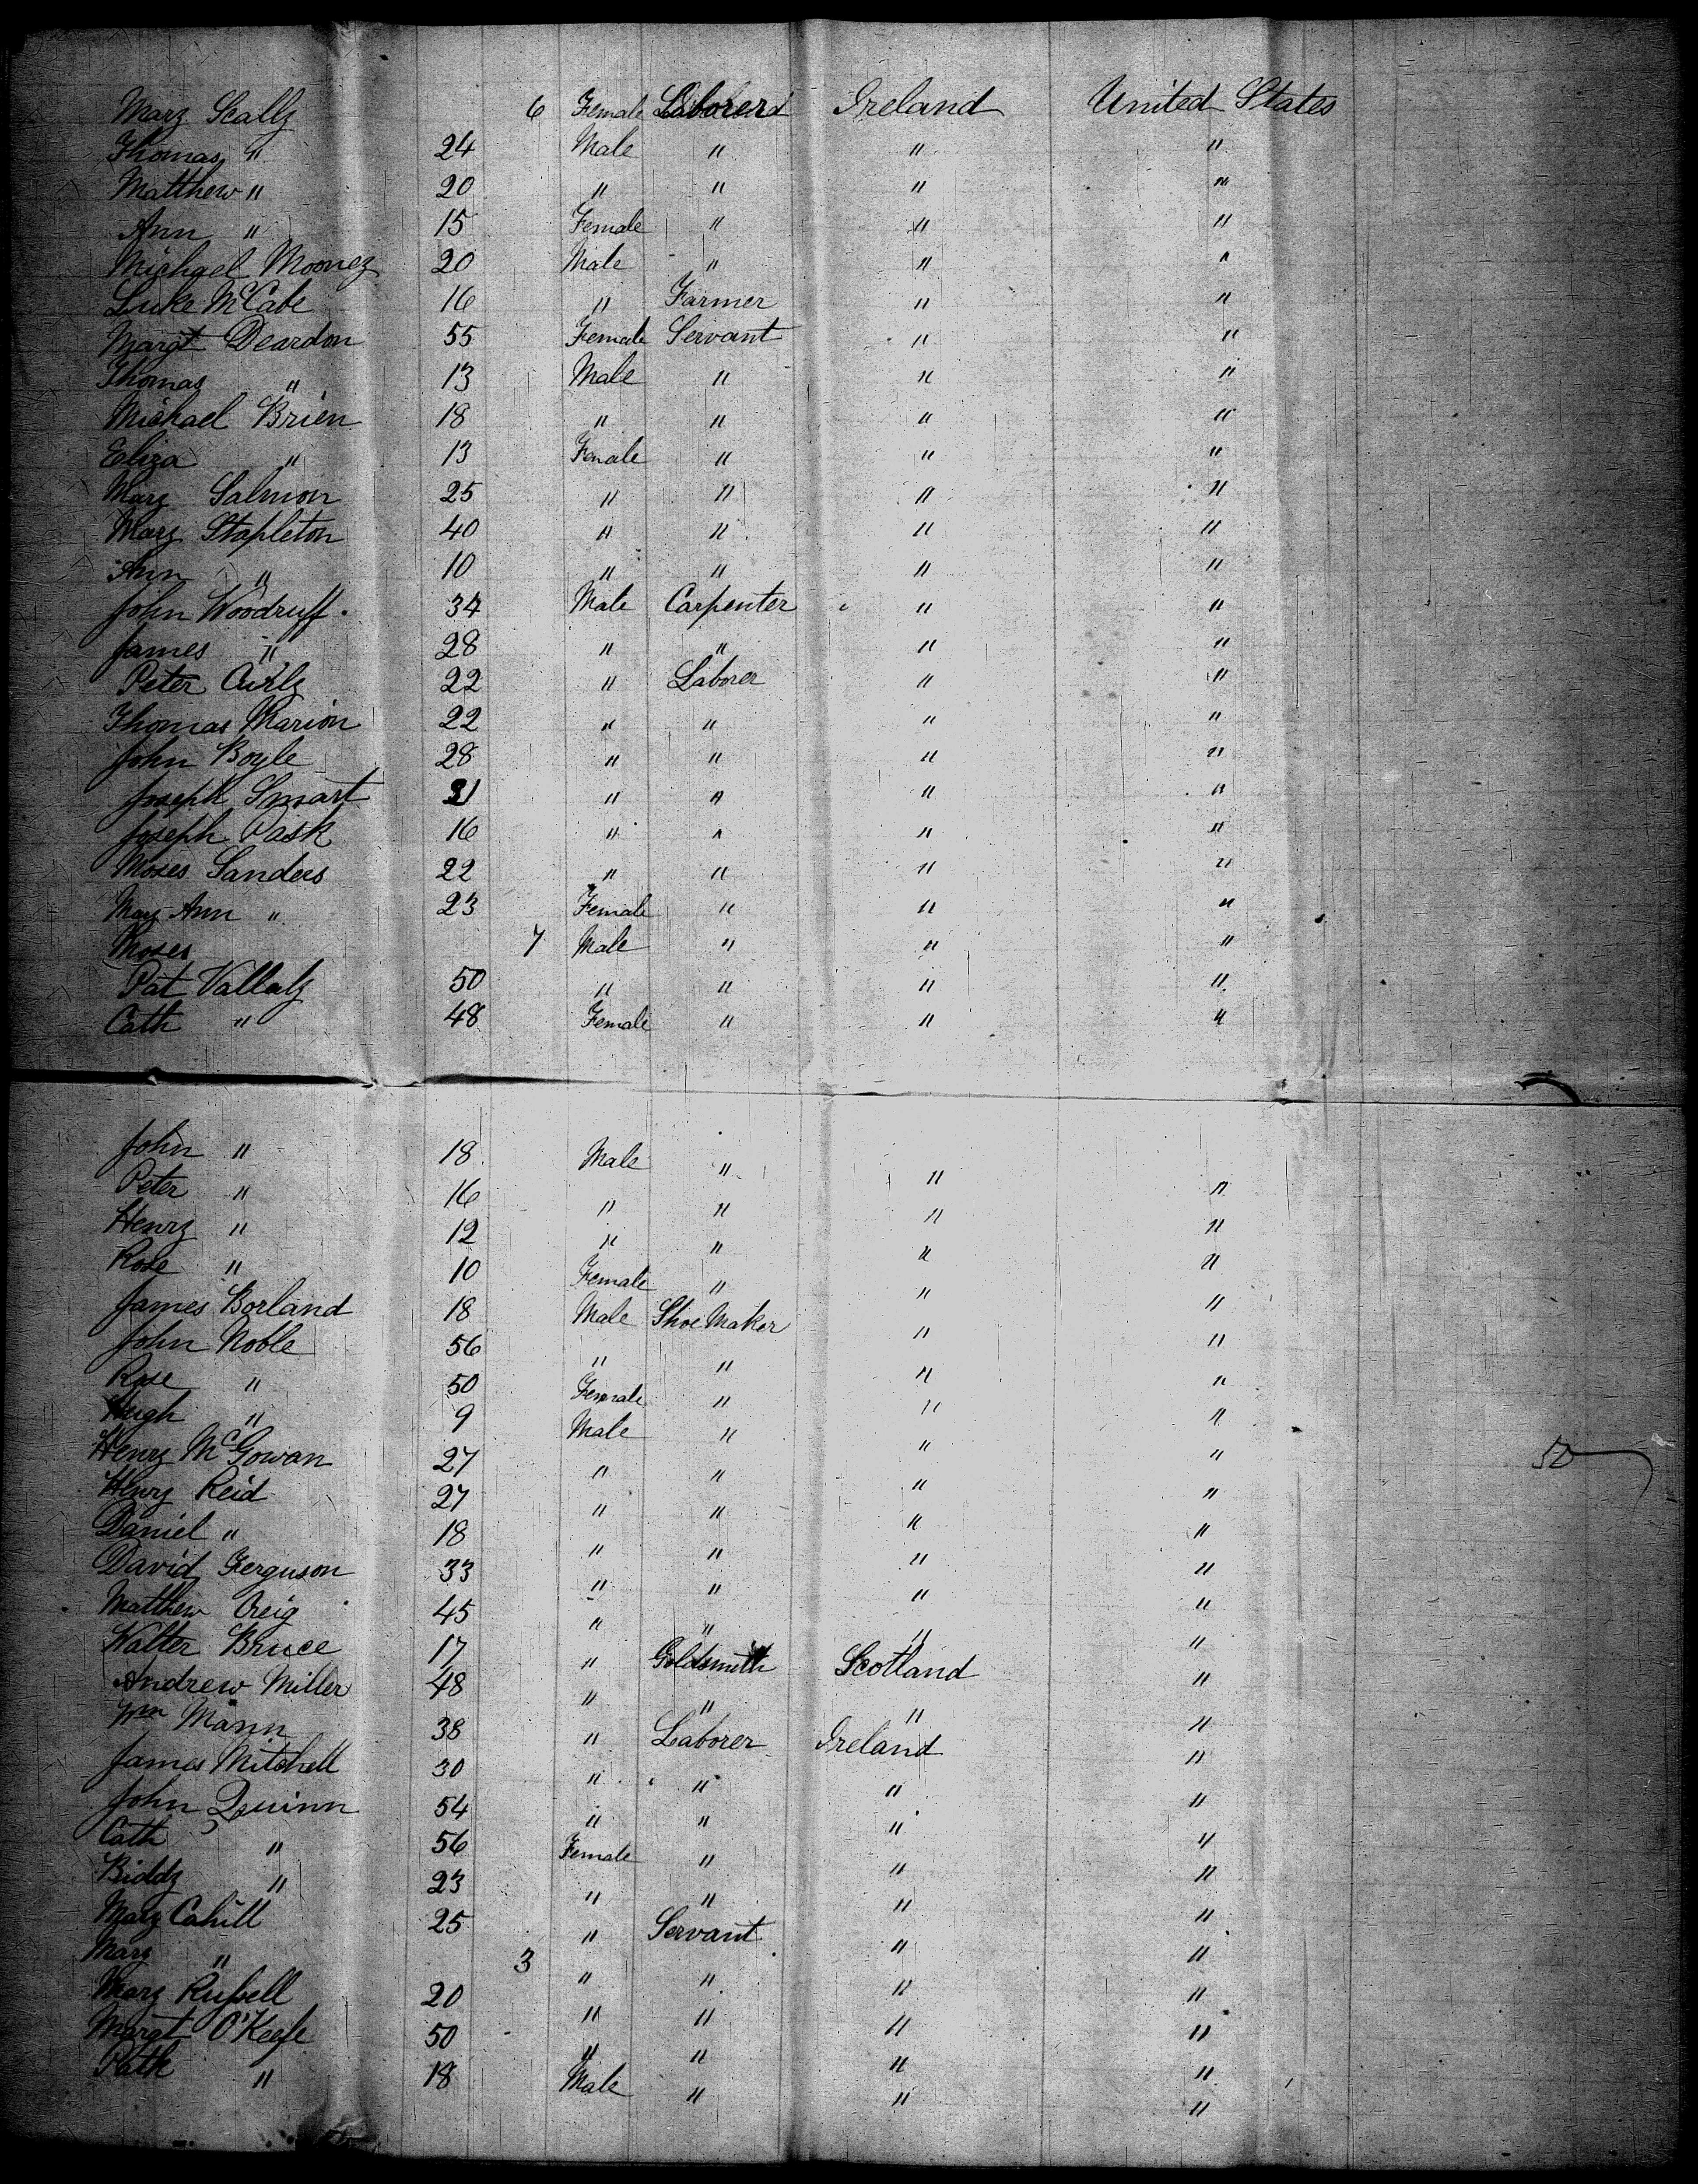 Mary Scally 6 Female Laborerd Ireland United States
Thomas " 24 Male " " "
Matthew " 20 " " " "
Ann " 15 Female " " "
Michael Mooney 20 Male " " "
Luke McCabe 16 " Farmer " "
Margt Deardon 55 Female Servant " "
Thomas " 13 Male " " "
Michael Brien 18 " " " "
Eliza " 13 Female " " "
Mary Salmon 25 " " " "
Mary Stapleton 40 " " " "
Ann " 10 " " " "
John Woodruff 34 Male Carpenter " "
James " 28 " " " "
Peter Curly 22 " Laborer " "
Thomas Marion 22 " " " "
John Boyle 28 " " " "
Joseph Smart 21 " " " "
Joseph Pask 16 " " " "
Moses Sanders 22 " " " "
Mary Ann " 23 Female " " "
Moses 7 Male " " "
Pat Vallaly 50 " " " "
Cath " 48 Female " " "
John " 18 Male " " "
Peter " 16 " " " "
Henry " 12 " " " "
Rose " 10 Female " " "
James Borland 18 Male Shoe Maker " "
John Noble 56 " " " "
Rose " 50 Female " " "
Hugh " 9 Male " " "
Henry McGowan 27 " " " "
Henry Reid 27 " " " "
Daniel " 18 " " " "
David Ferguson 33 " " " "
Matthew Creig 45 " " " "
Walter Bruce 17 " Goldsmith Scotland "
Andrew Miller 48 " " " "
Wm Mann 38 " Laborer Ireland "
James Mitchell 30 " " " "
John Quinn 54 " " " "
Cath " 56 Female " " "
Biddy " 23 " " " "
Mary Cahill 25 " Servant " "
Mary " 3 " " " "
Mary Russell 20 " " " "
Margt O'Keefe 50 " " " "
Patk " 18 Male " " "
50